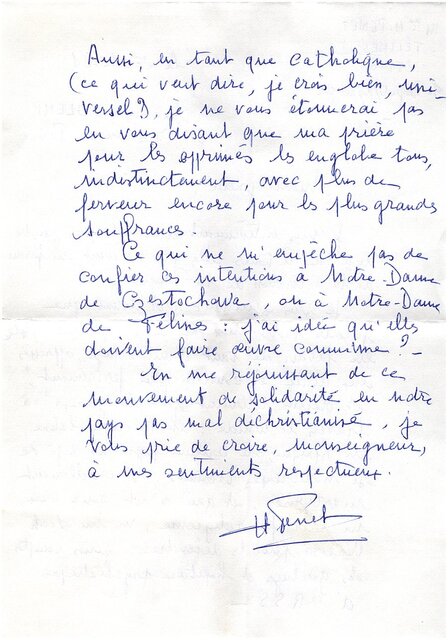 Aussi, en tant que catholique,
(ce qui veut dire, je crois bien, uni-
versel ?), je ne vous étonnerai pas
en vous disant que ma prière
pour les opprimés les englobe tous,
indistinctement, avec plus de
ferveur encore pour les plus grandes
souffrances.
Ce qui ne m'empêche pas de
confier ces intentions à Notre-Dame
de Czestochowa, ou à Notre-Dame
de Félines : j'ai idée qu'elles
doivent faire œuvre commune ? -
En me réjouissant de ce
mouvement de solidarité en notre
pays pas mal déchristianisé, je
vous prie de croire, Monseigneur,
à mes sentiments respectueux.